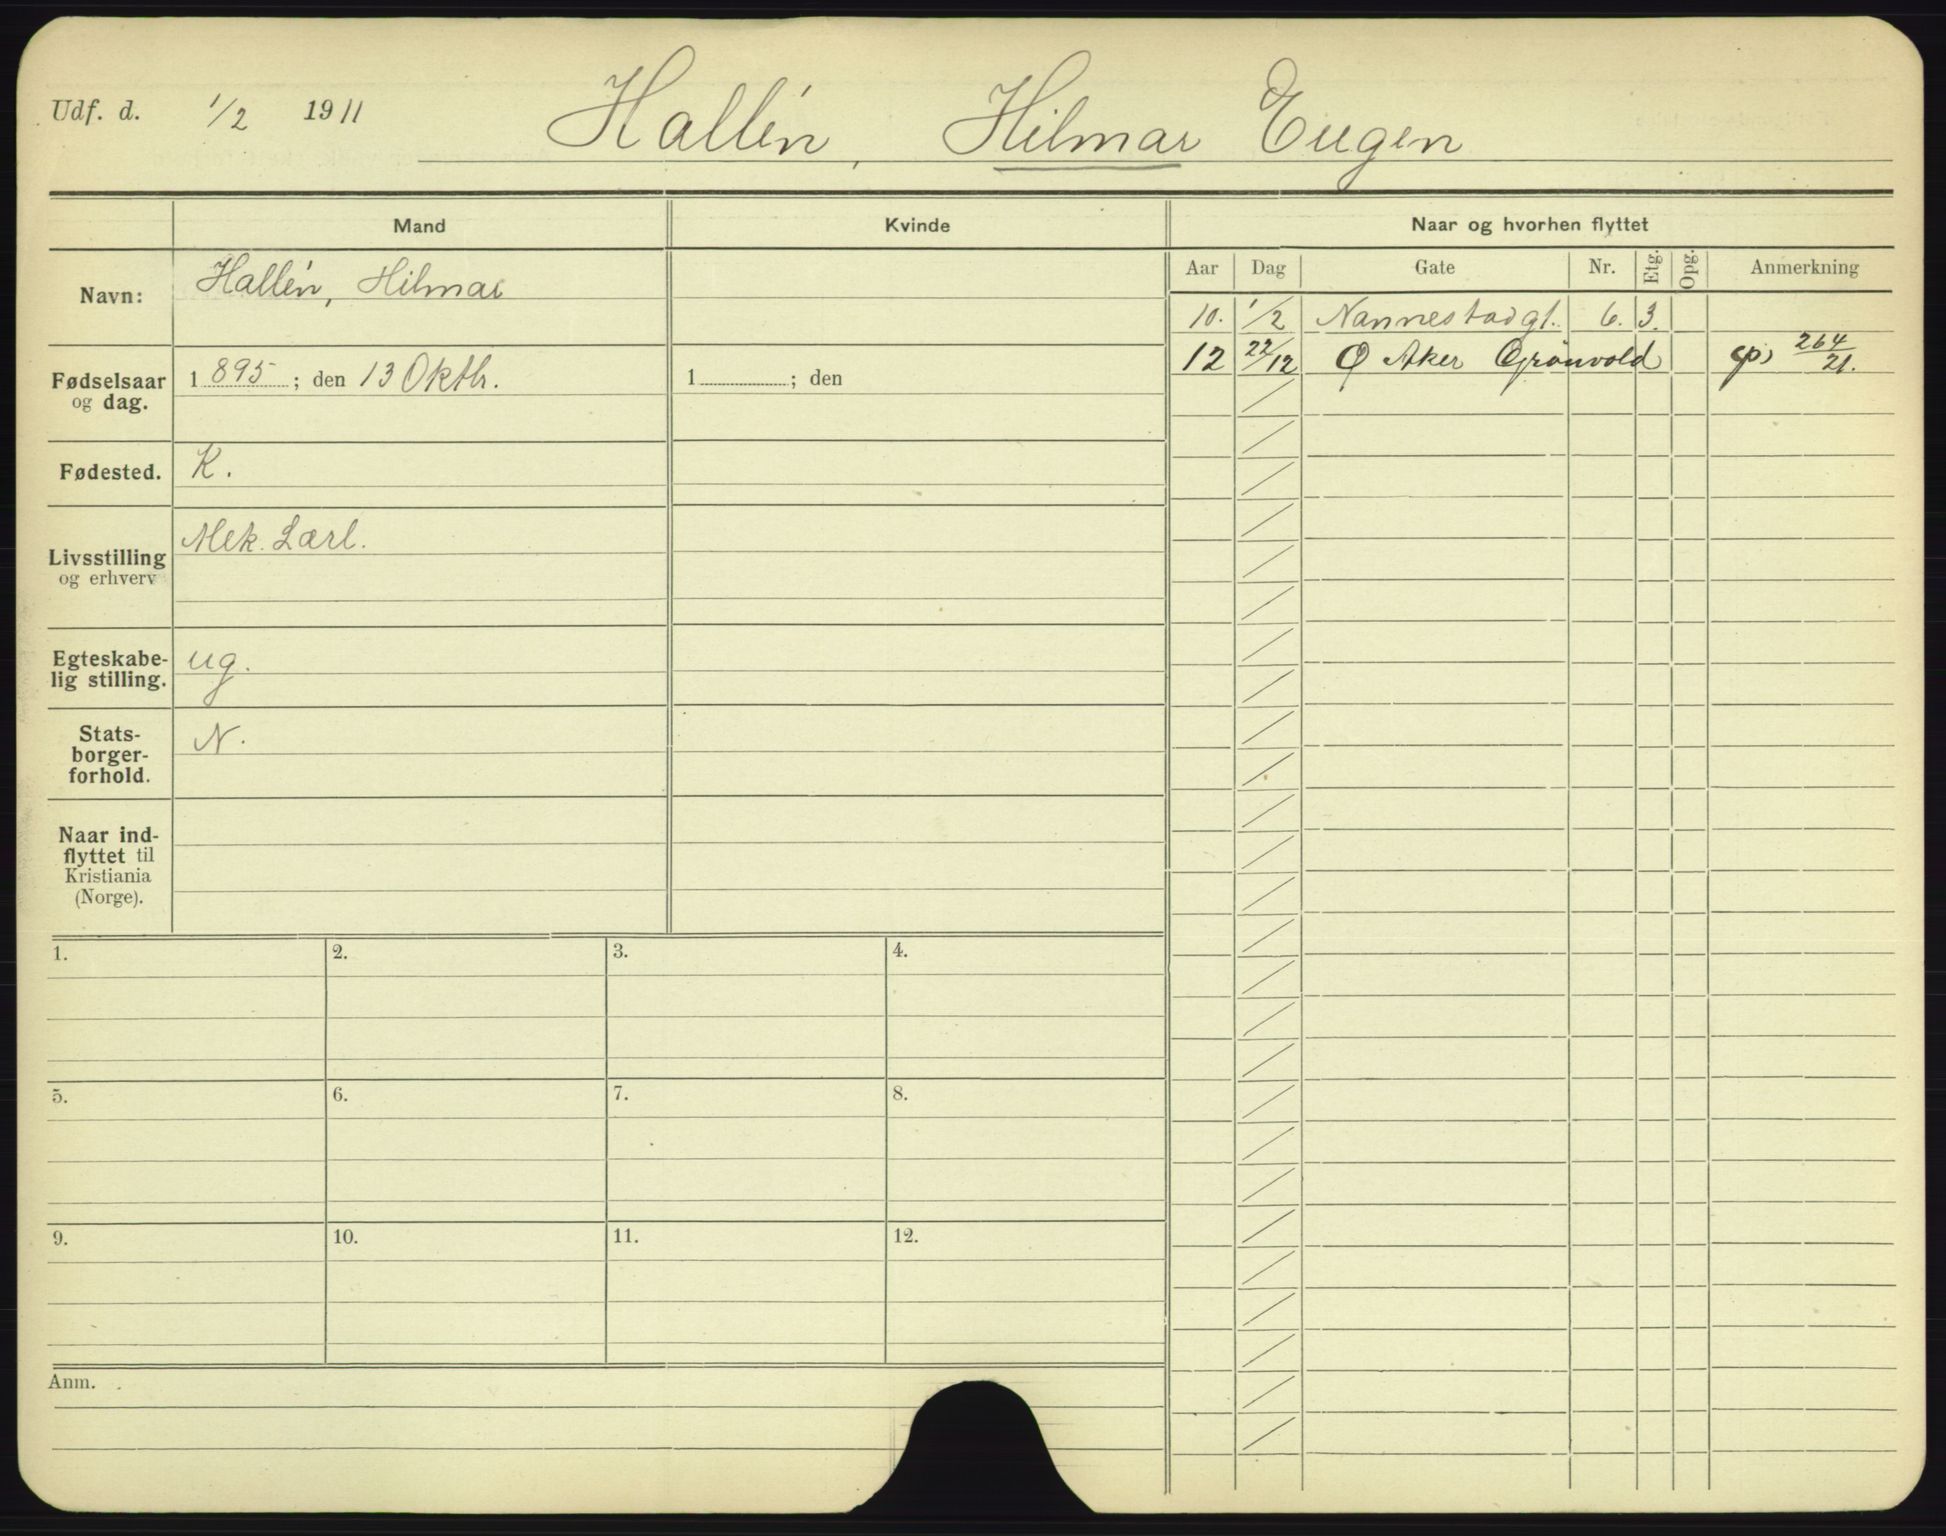 Udf. d. 1/2 1911 Hallén, Hilmar Eugen
Mand Kvinde Naar og hvorhen flyttet
Aar Dag Gate Nr. Etg. Opg. Anmerkning
Navn: Hallén, Hilmar
10. 1/2 Nannestadgt. 6. 3.
12 22/12 Ø Aker Grönvold 264/21.
Fødselsaar
og dag.
1895; den 13 Oktbr. 1 ; den
Fødested. K.
Livsstilling
og erhverv
Mek. Lærl.
Egteskabe-
lig stilling.
ug.
Stats-
borger-
forhold.
N.
Naar ind-
flyttet til
Kristiania
(Norge).
1. 2. 3. 4.
5. 6. 7. 8.
9. 10. 11. 12.
Anm.